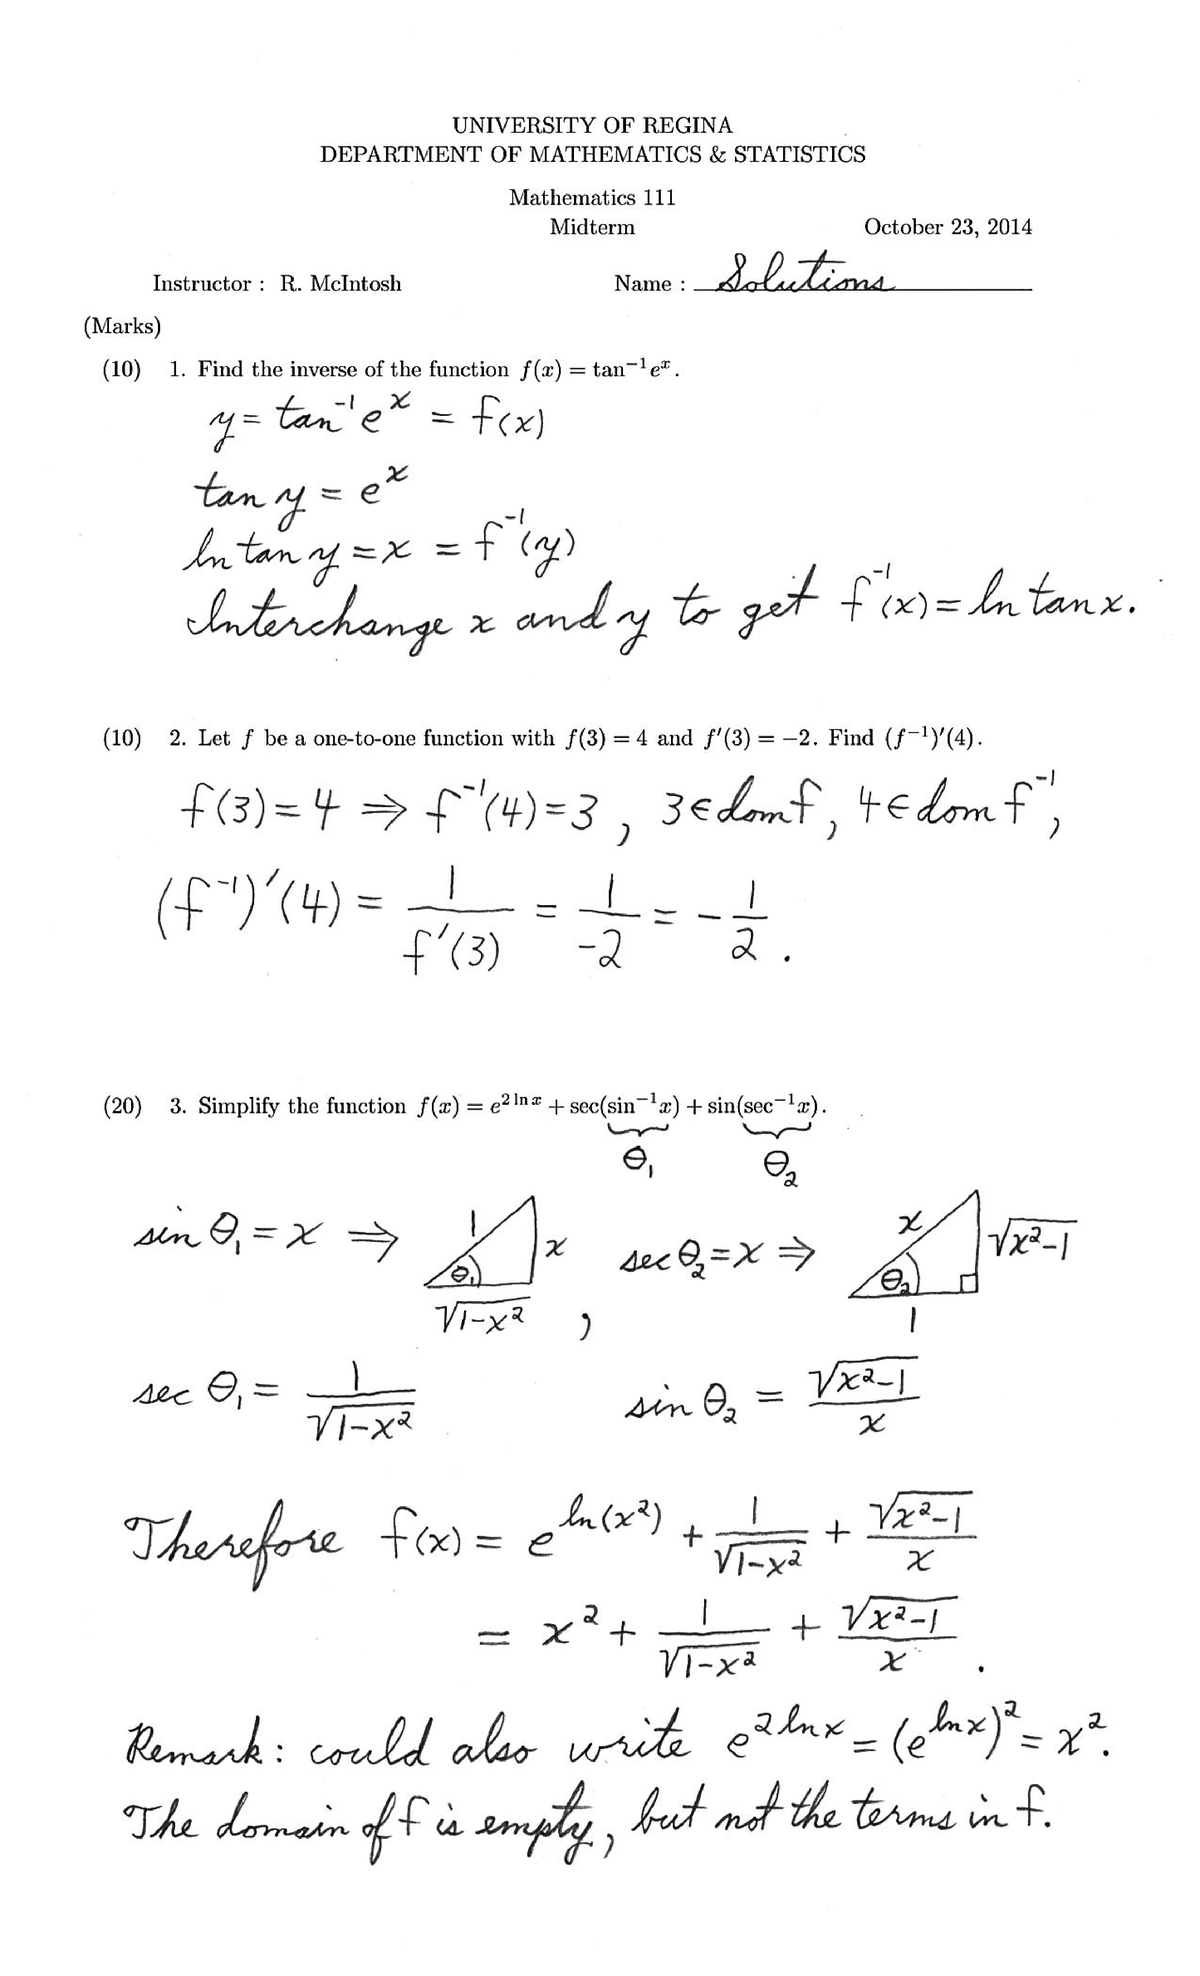 UNIVERSITY OF REGINA
DEPARTMENT OF MATHEMATICS & STATISTICS
Mathematics 111
Midterm October 23, 2014
Instructor : R. McIntosh Name : Solutions
(Marks)
(10) 1. Find the inverse of the function f(x) = tan⁻¹eˣ.
y = tan⁻¹eˣ = f(x)
tan y = eˣ
ln tan y = x = f⁻¹(y)
Interchange x and y to get f⁻¹(x) = ln tan x.
(10) 2. Let f be a one-to-one function with f(3) = 4 and f′(3) = −2. Find (f⁻¹)′(4).
f(3) = 4 ⇒ f⁻¹(4) = 3, 3 ∈ dom f, 4 ∈ dom f⁻¹,
(f⁻¹)′(4) = 1/f′(3) = 1/-2 = -1/2.
(20) 3. Simplify the function f(x) = e^(2 ln x) + sec(sin⁻¹x) + sin(sec⁻¹x).
θ₁ θ₂
sin θ₁ = x ⇒ 1 x θ₁ √(1-x²), sec θ₂ = x ⇒ x √(x²-1) θ₂ 1
sec θ₁ = 1/√(1-x²) sin θ₂ = √(x²-1)/x
Therefore f(x) = e^(ln(x²)) + 1/√(1-x²) + √(x²-1)/x
= x² + 1/√(1-x²) + √(x²-1)/x.
Remark: could also write e^(2 ln x) = (e^(ln x))² = x².
The domain of f is empty, but not the terms in f.